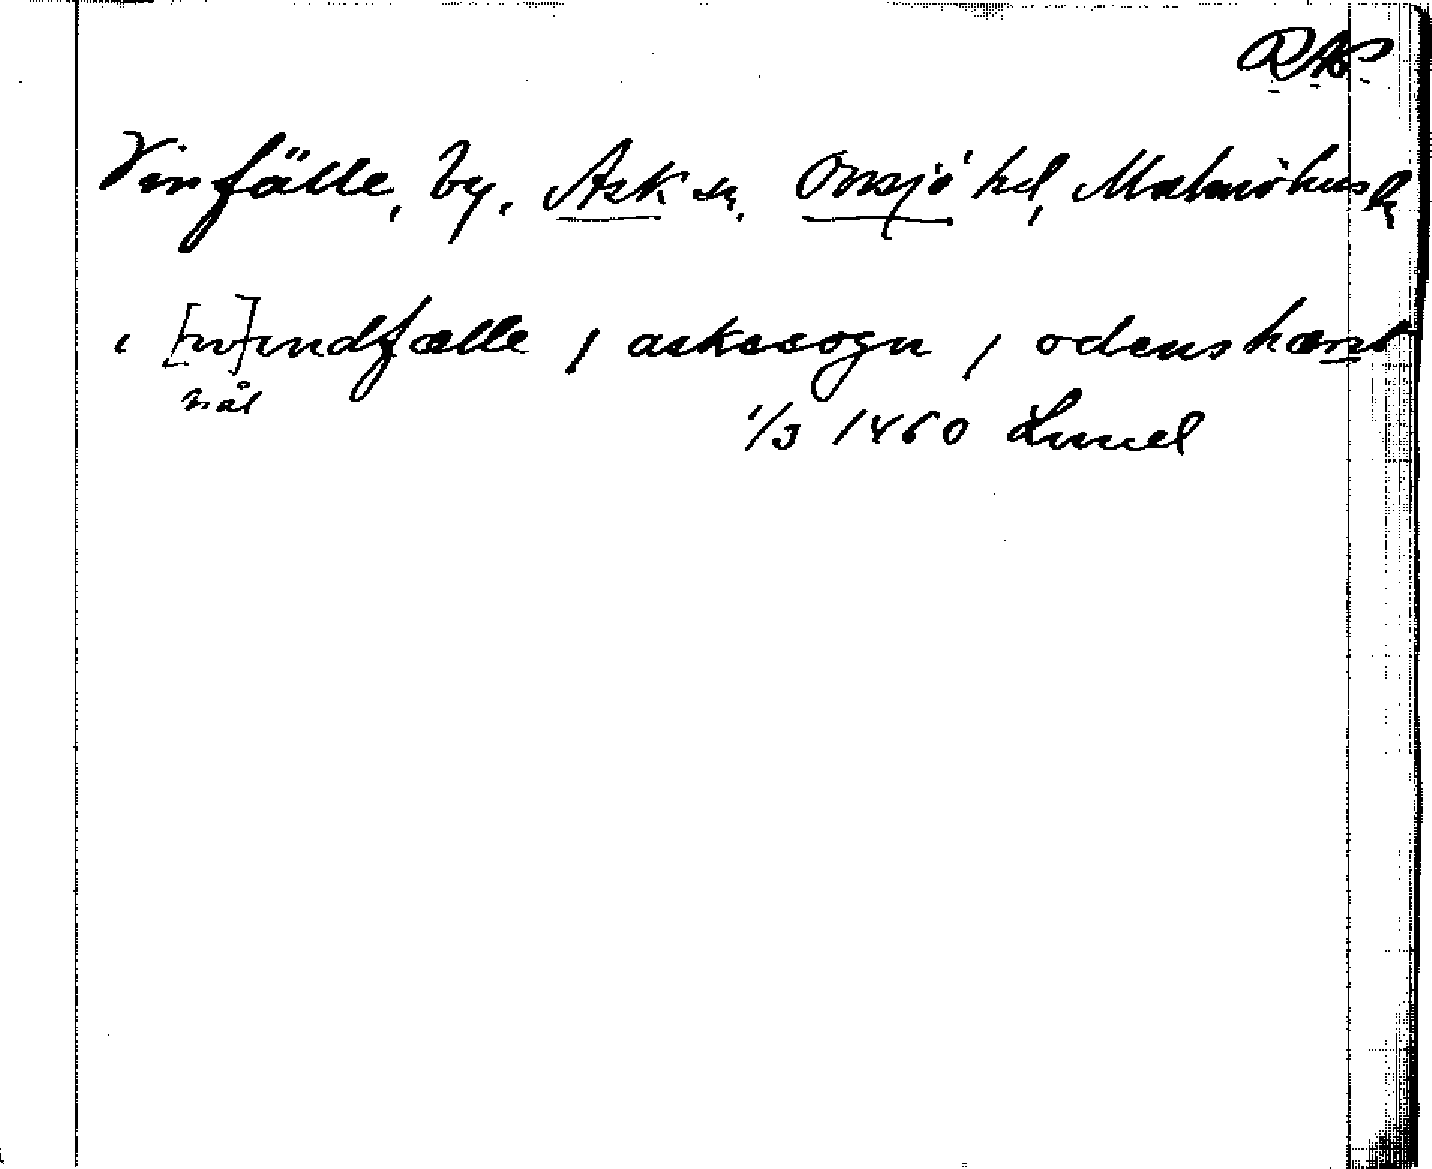 RAP
Vinfälle, by. Ask sn. Onsjö hd, Malmöhus l.
i [w]indfælle / asksogn / odens hæret
hål
1/3 1460 Lund